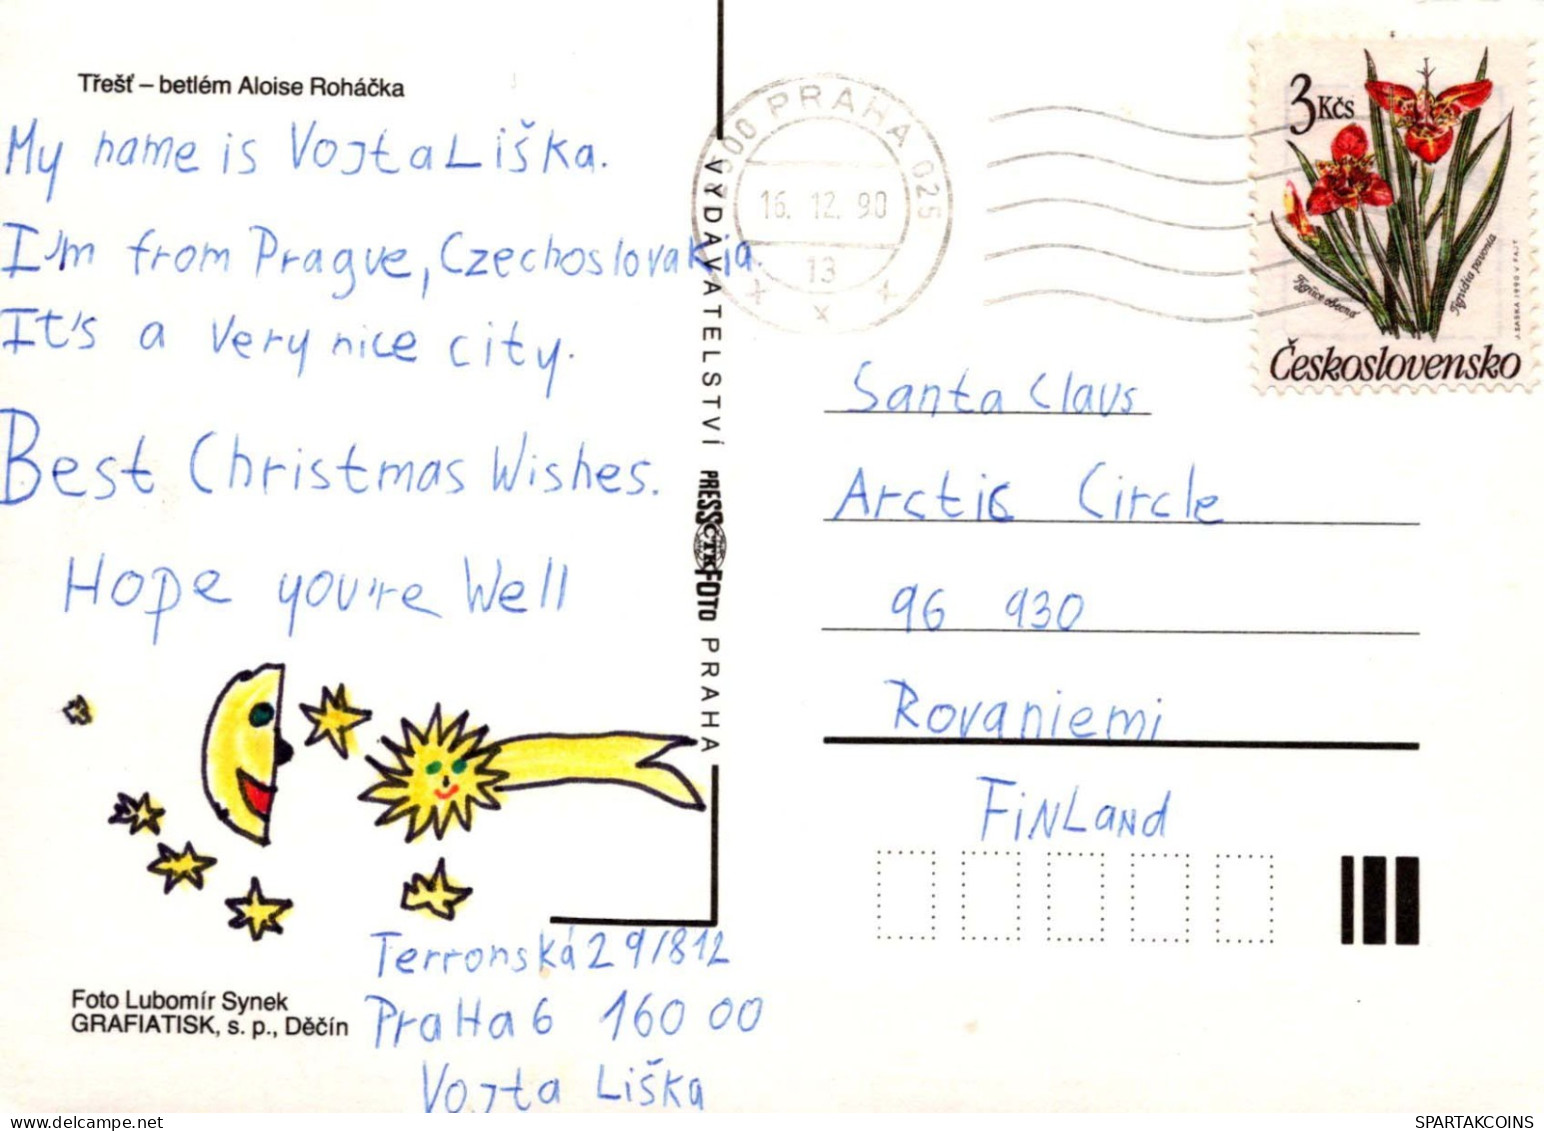 Třešť – betlém Aloise Roháčka
My name is Vojta Liška.
I'm from Prague, Czechoslovakia.
It's a very nice city.
Best Christmas Wishes.
Hope you're Well
Terronská 29/812
PraHa 6 160 00
Vojta Liška
Foto Lubomír Synek
GRAFIATISK, s. p., Děčín
VYDAVATELSTVÍ PRESSFOTO PRAHA
ČTK
PRAHA 025
16. 12. 90
13
3 Kčs
Tygřice obecná
Tigridia pavonia
J. LISKA 1990 V. FAJT
Československo
Santa Claus
Arctic Circle
96 930
Rovaniemi
FiNLaNd
SPARTAKCOINS